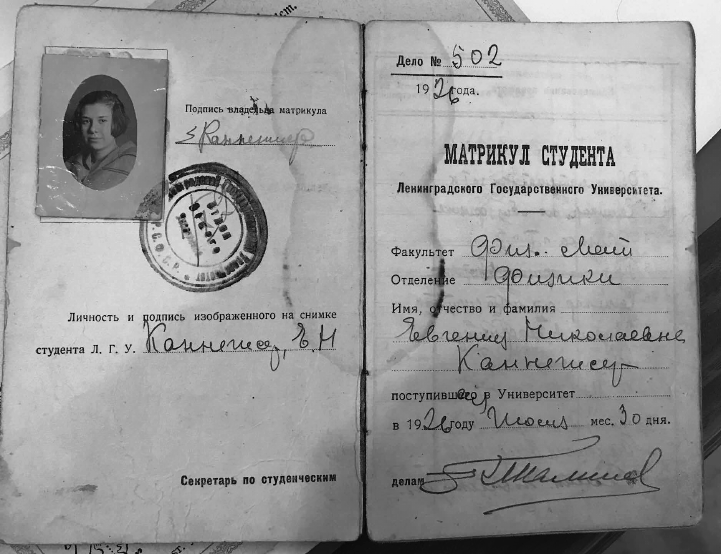 Подпись владельца матрикула
Каннегисер
Р. С. Ф. С. Р.
Личность и подпись изображенного на снимке
студента Л. Г. У. Каннегисер, Е. Н
Секретарь по студенческим
Дело № 502
1926 года.
МАТРИКУЛ СТУДЕНТА
Ленинградского Государственного Университета.
Факультет Физ.-Мат
Отделение Физики
Имя, отчество и фамилия
Евгения Николаевна
Каннегисер
поступившей в Университет
в 1926 году Июня мес. 30 дня.
делам